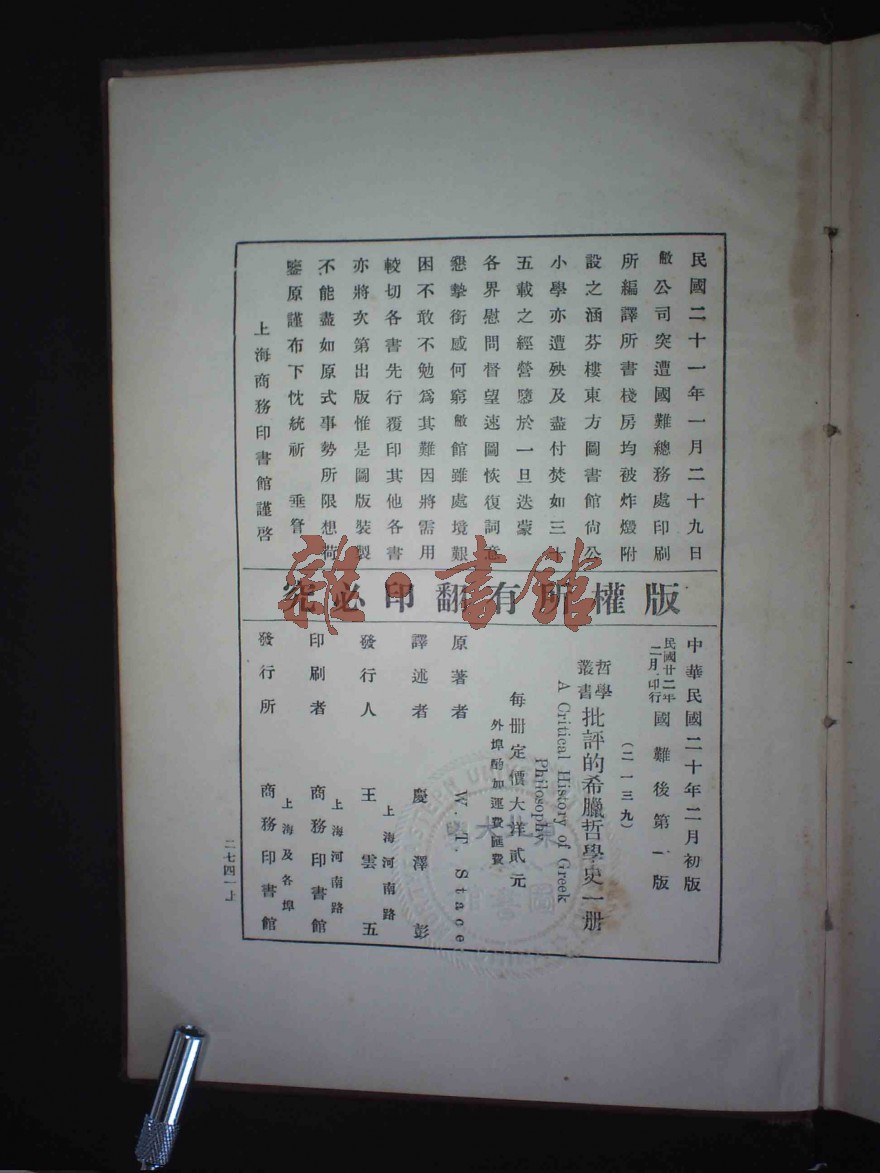 民國二十一年一月二十九日
敝公司突遭國難總務處印刷
所編譯所書棧房均被炸燬附
設之涵芬樓東方圖書館尙公
小學亦遭殃及盡付焚如三十
五載之經營隳於一旦迭蒙
各界慰問督望速圖恢復詞意
懇摯銜感何窮敝館雖處境艱
困不敢不勉爲其難因將需用
較切各書先行覆印其他各書
亦將次第出版惟是圖版裝製
不能盡如原式事勢所限想荷
鑒原謹布下忱統祈 垂詧
上海商務印書館謹啓
版權所有翻印必究
雜·書館
中華民國二十年二月初版
民國廿二年二月印行 國難後第一版
(二一三九)
哲學叢書 批評的希臘哲學史一册
A Critical History of Greek
Philosophy
每册定價大洋貳元
外埠酌加運費匯費
原著者 W. T. Stace
譯述者 慶澤彭
發行人 上海河南路 王雲五
印刷者 上海河南路 商務印書館
發行所 上海及各埠 商務印書館
二七四一上